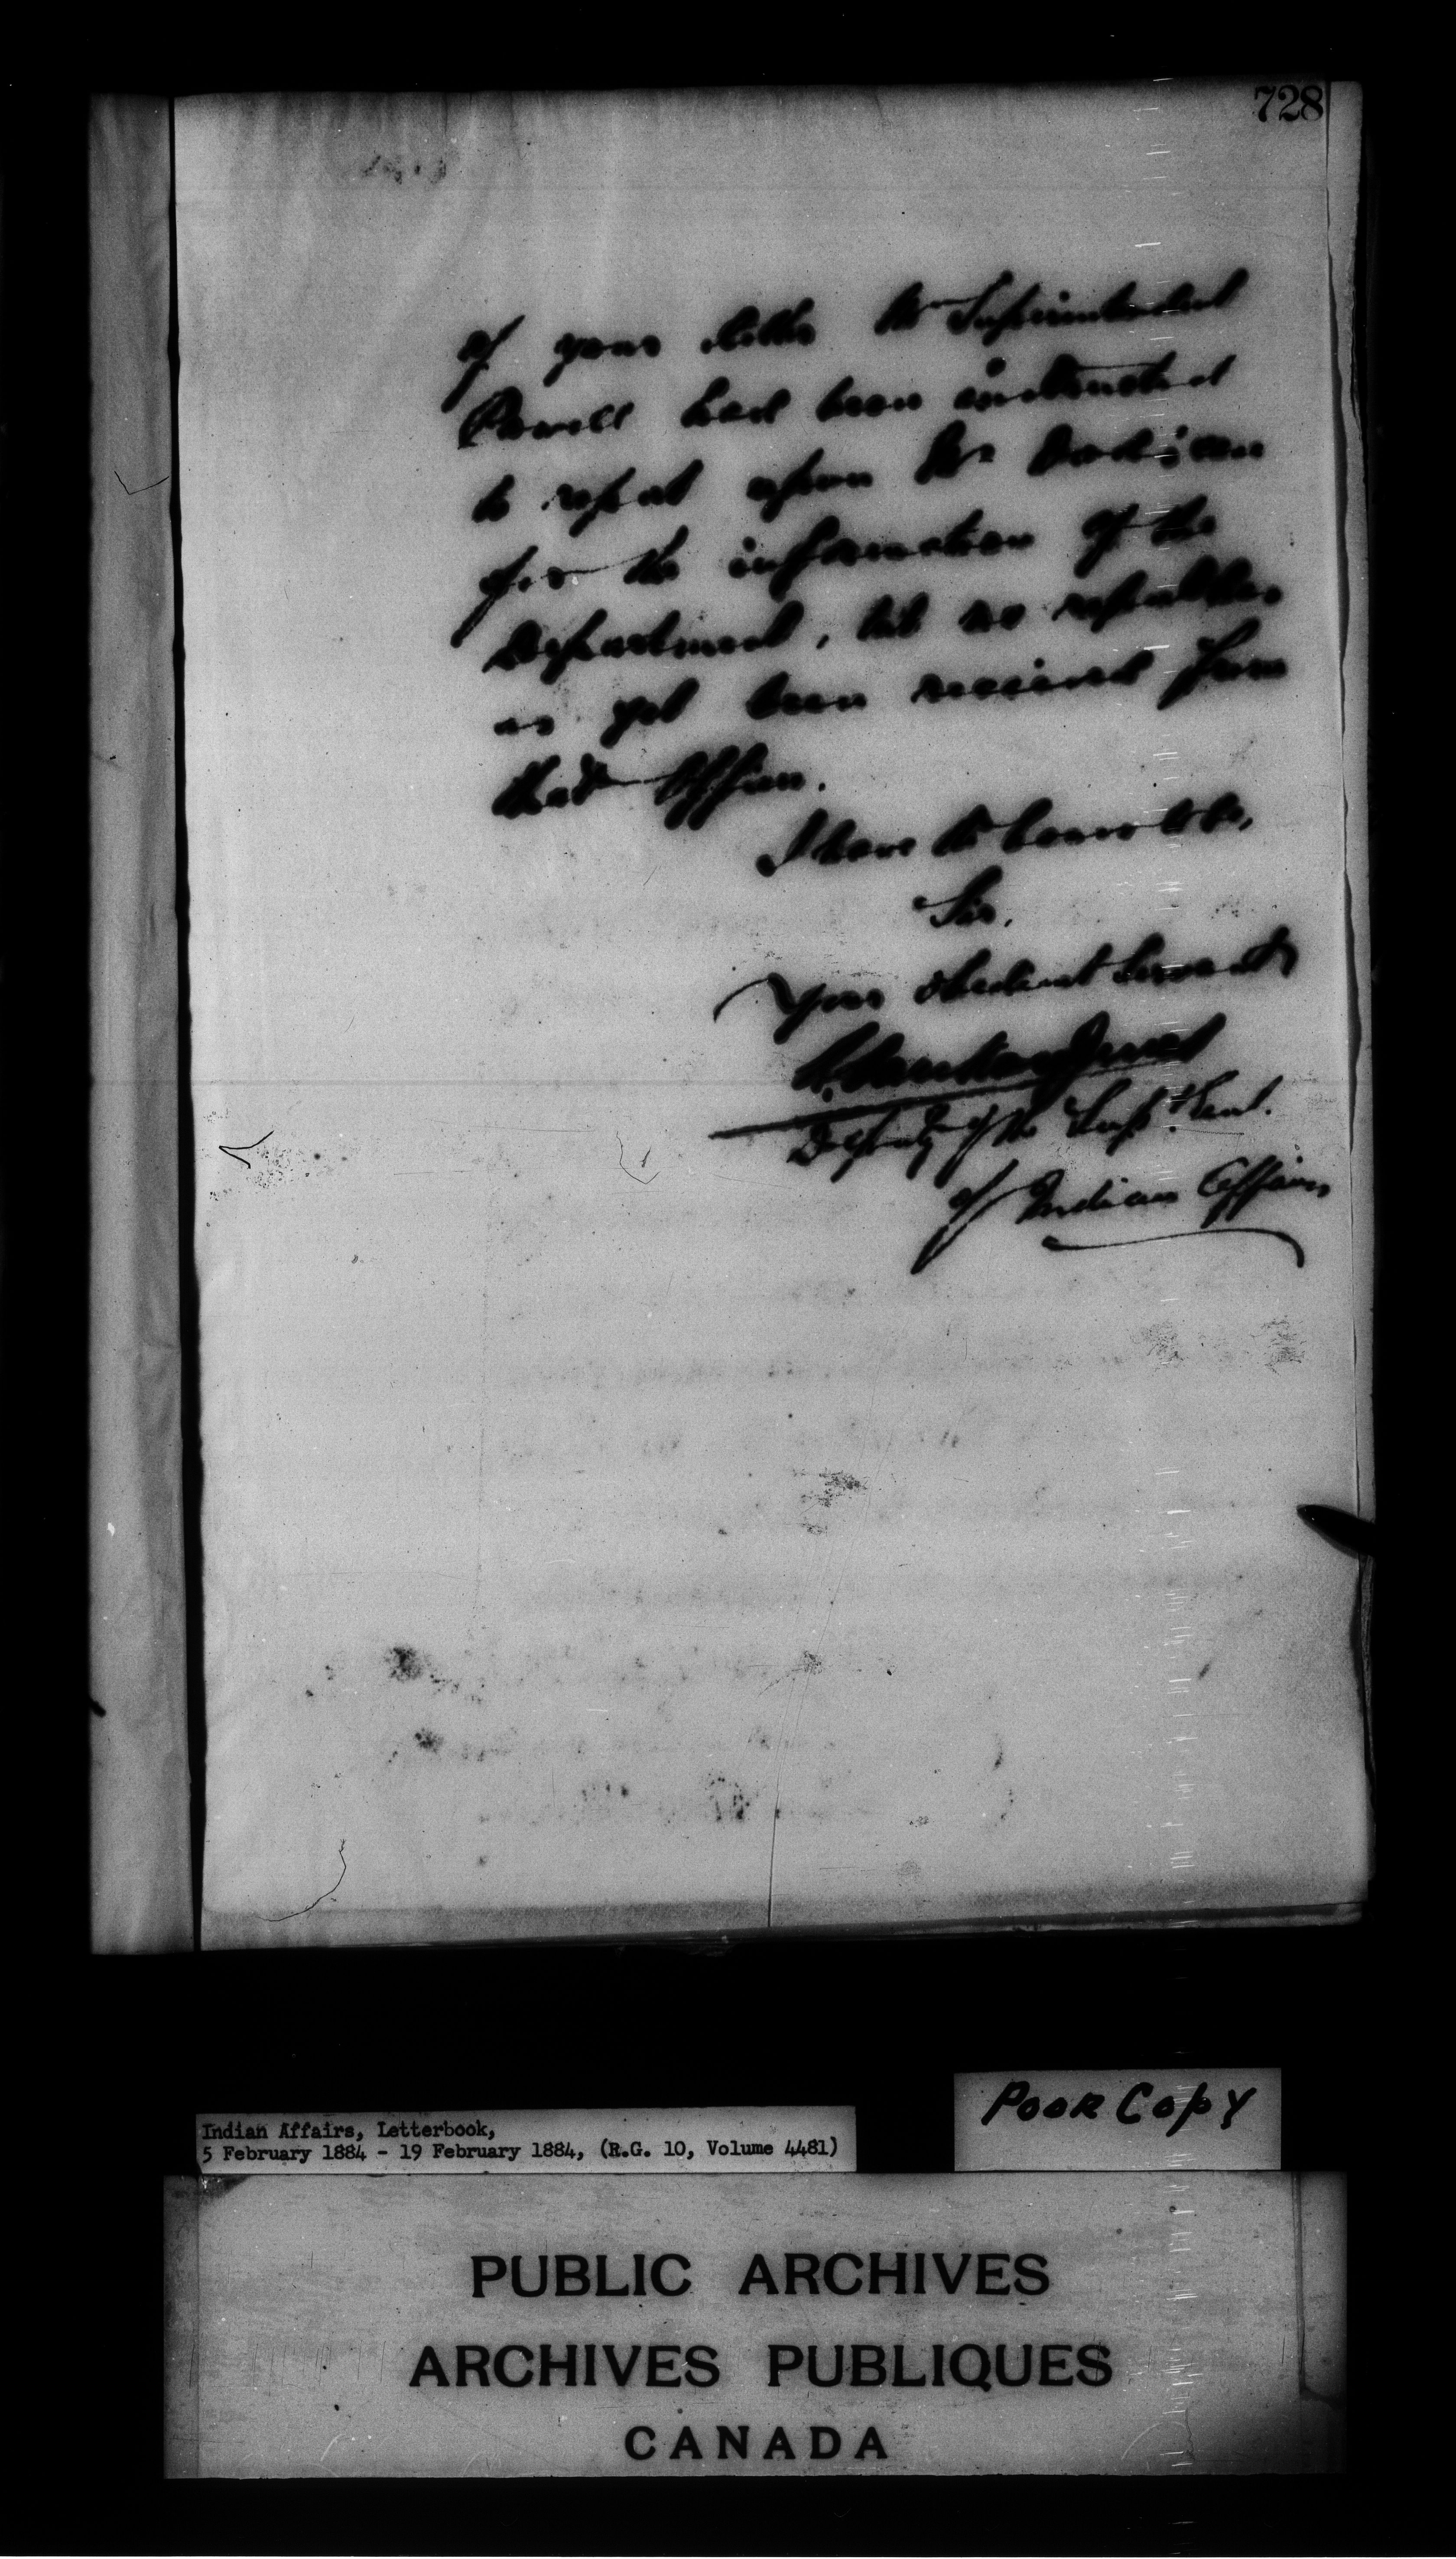 728
of your letter Mr Superintendent
Powell had been instructed
to report upon Mr
for the information of the
Department, but no report has
as yet been received from
that Officer.
I have the honor to be,
Sir,
Your obedient Servant
L. Vankoughnet
Deputy of the Supt. Genl.
of Indian Affairs
Indian Affairs, Letterbook,
5 February 1884 - 19 February 1884, (R.G. 10, Volume 4481)
POOR COPY
PUBLIC ARCHIVES
ARCHIVES PUBLIQUES
CANADA